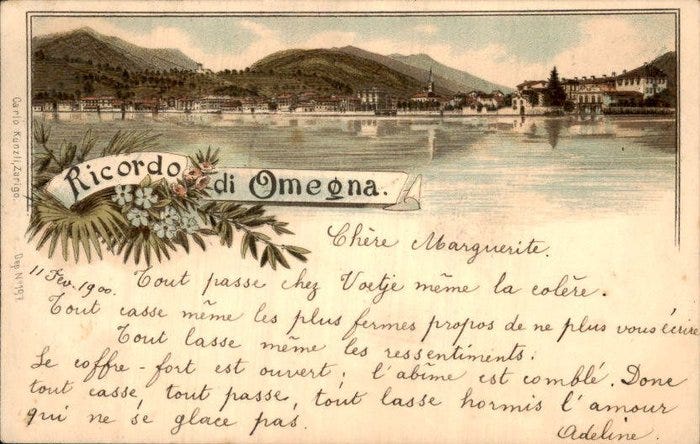 Ricordo di Omegna.
Carlo Künzli, Zurigo.
Dep. No 197
Chère Marguerite.
11 Fév. 1900. Tout passe chez Voetje même la colère.
Tout casse même les plus fermes propos de ne plus vous écrire
Tout lasse même les ressentiments.
Le coffre-fort est ouvert; l'abîme est comblé. Donc
tout casse, tout passe, tout lasse hormis l'amour
qui ne se glace pas.
Adeline.